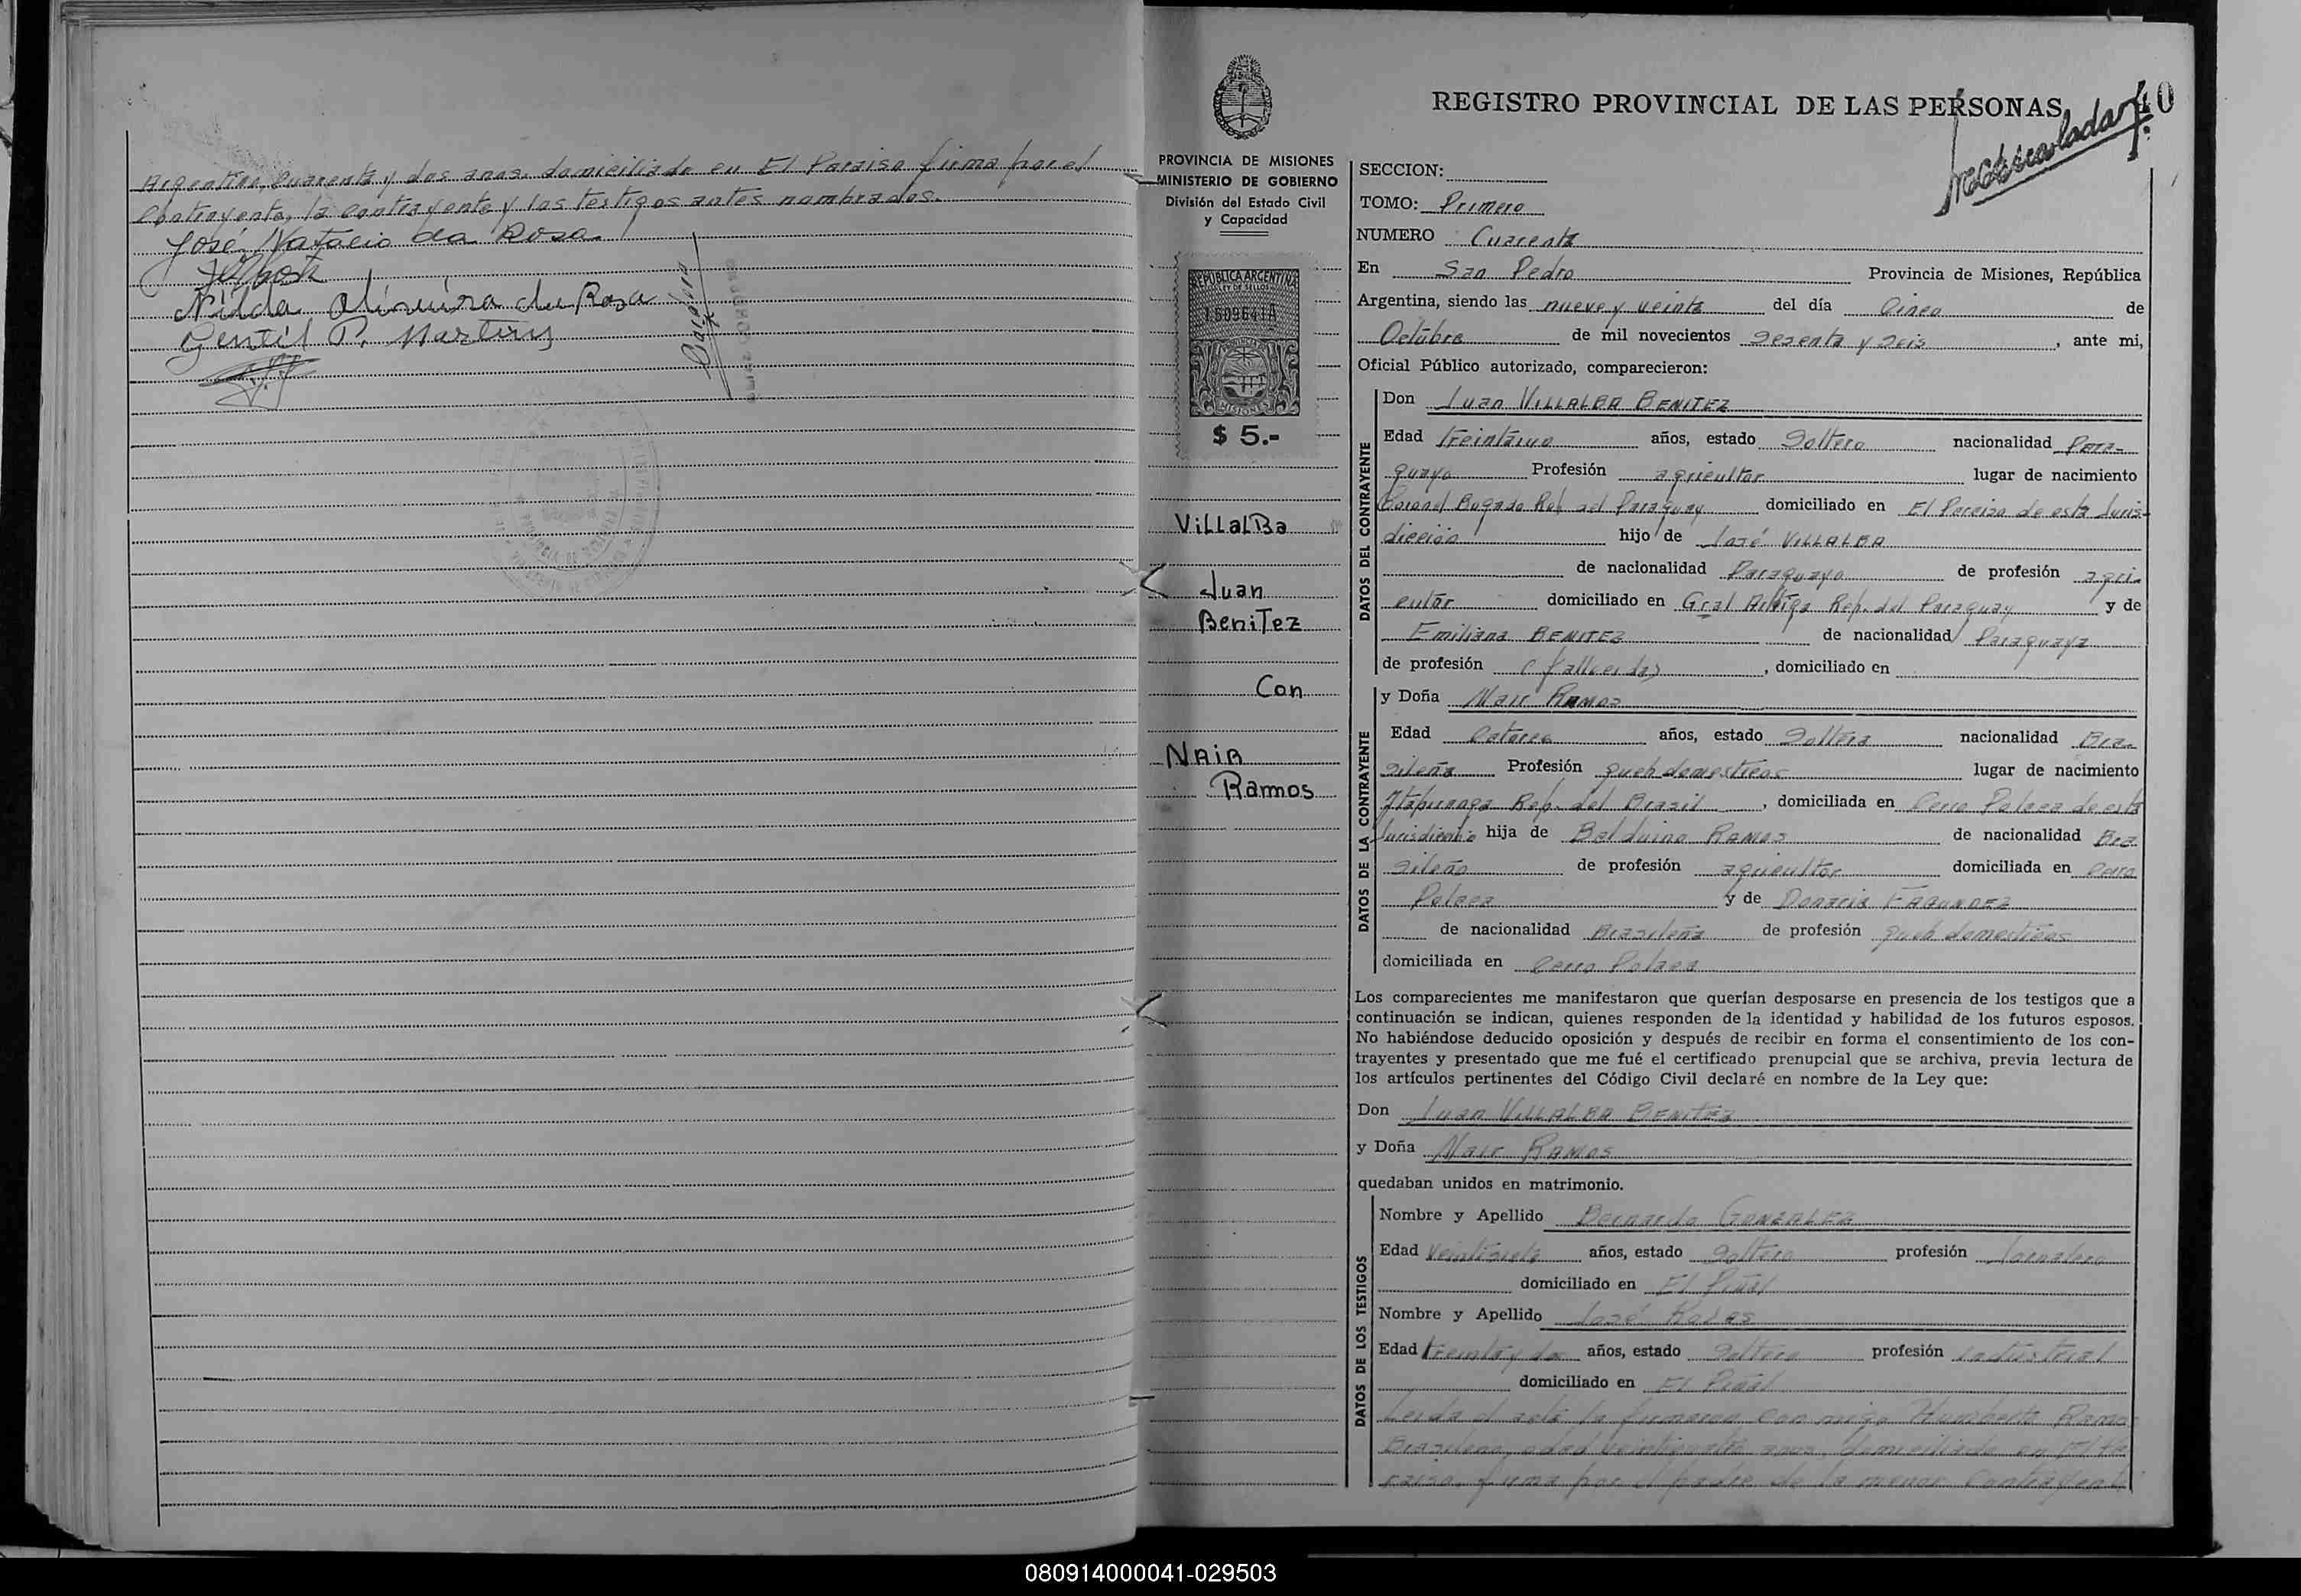 Argentino, Cuarenta y dos anos, domiciliado en El Paraiso firma por el
Contrayente, la contrayente y los testigos antes nombrados.
José Natalio da Rosa
Nilda
Gentil P. Martins
REGISTRO PROVINCIAL DE LAS PERSONAS
40
PROVINCIA DE MISIONES
MINISTERIO DE GOBIERNO
División del Estado Civil
y Capacidad
REPUBLICA ARGENTINA
LEY DE SELLOS
MISIONES
$ 5.-
VillalBa
Juan
BeniTez
Con
NAIR
Ramos
SECCION:
TOMO: Primero
NUMERO Cuarenta
En San Pedro Provincia de Misiones, República
Argentina, siendo las nueve y veinte del día Cinco de
Octubre de mil novecientos sesenta y seis, ante mi,
Oficial Público autorizado, comparecieron:
DATOS DEL CONTRAYENTE
Don Juan VILLALBA BENITEZ
Edad treintaiuno años, estado Soltero nacionalidad Para-
guayo Profesión agricultor lugar de nacimiento
Coronel Bogado Rep. del Paraguay domiciliado en El Paraiso de esta Juris-
dicción hijo de José VILLALBA
de nacionalidad Paraguayo de profesión agri-
cultor domiciliado en Gral Artiga Rep. del Paraguay y de
Emiliana BENITEZ de nacionalidad Paraguaya
de profesión (fallecida), domiciliado en
DATOS DE LA CONTRAYENTE
y Doña Nair RAMOS
Edad Catorce años, estado Soltera nacionalidad Bra-
sileña Profesión queh domesticos lugar de nacimiento
Itapiranga Rep. del Brasil, domiciliada en Cerro Polaca de esta
Jurisdicción hija de Balduino RAMOS de nacionalidad Bra
sileño de profesión agricultor domiciliada en Cerro
Polaca y de Donacia FAGUNDEZ
de nacionalidad Brasileña de profesión queh domesticos
domiciliada en Cerro Polaca
Los comparecientes me manifestaron que querían desposarse en presencia de los testigos que a
continuación se indican, quienes responden de la identidad y habilidad de los futuros esposos.
No habiéndose deducido oposición y después de recibir en forma el consentimiento de los con-
trayentes y presentado que me fué el certificado prenupcial que se archiva, previa lectura de
los artículos pertinentes del Código Civil declaré en nombre de la Ley que:
Don Juan VILLALBA BENITEZ
y Doña Nair RAMOS
quedaban unidos en matrimonio.
DATOS DE LOS TESTIGOS
Nombre y Apellido Bernardo GONZALEZ
Edad Veintisiete años, estado Soltero profesión Jornalero
domiciliado en El Piñal
Nombre y Apellido José
Edad treinta y dos años, estado Soltero profesión industrial
domiciliado en El Piñal
Leida el acta la firmaron con migo Humberto Ramos
Brasileno, edad anos, domiciliado en El Pa
raiso, firma por el padre de la menor Contrayente
080914000041-029503